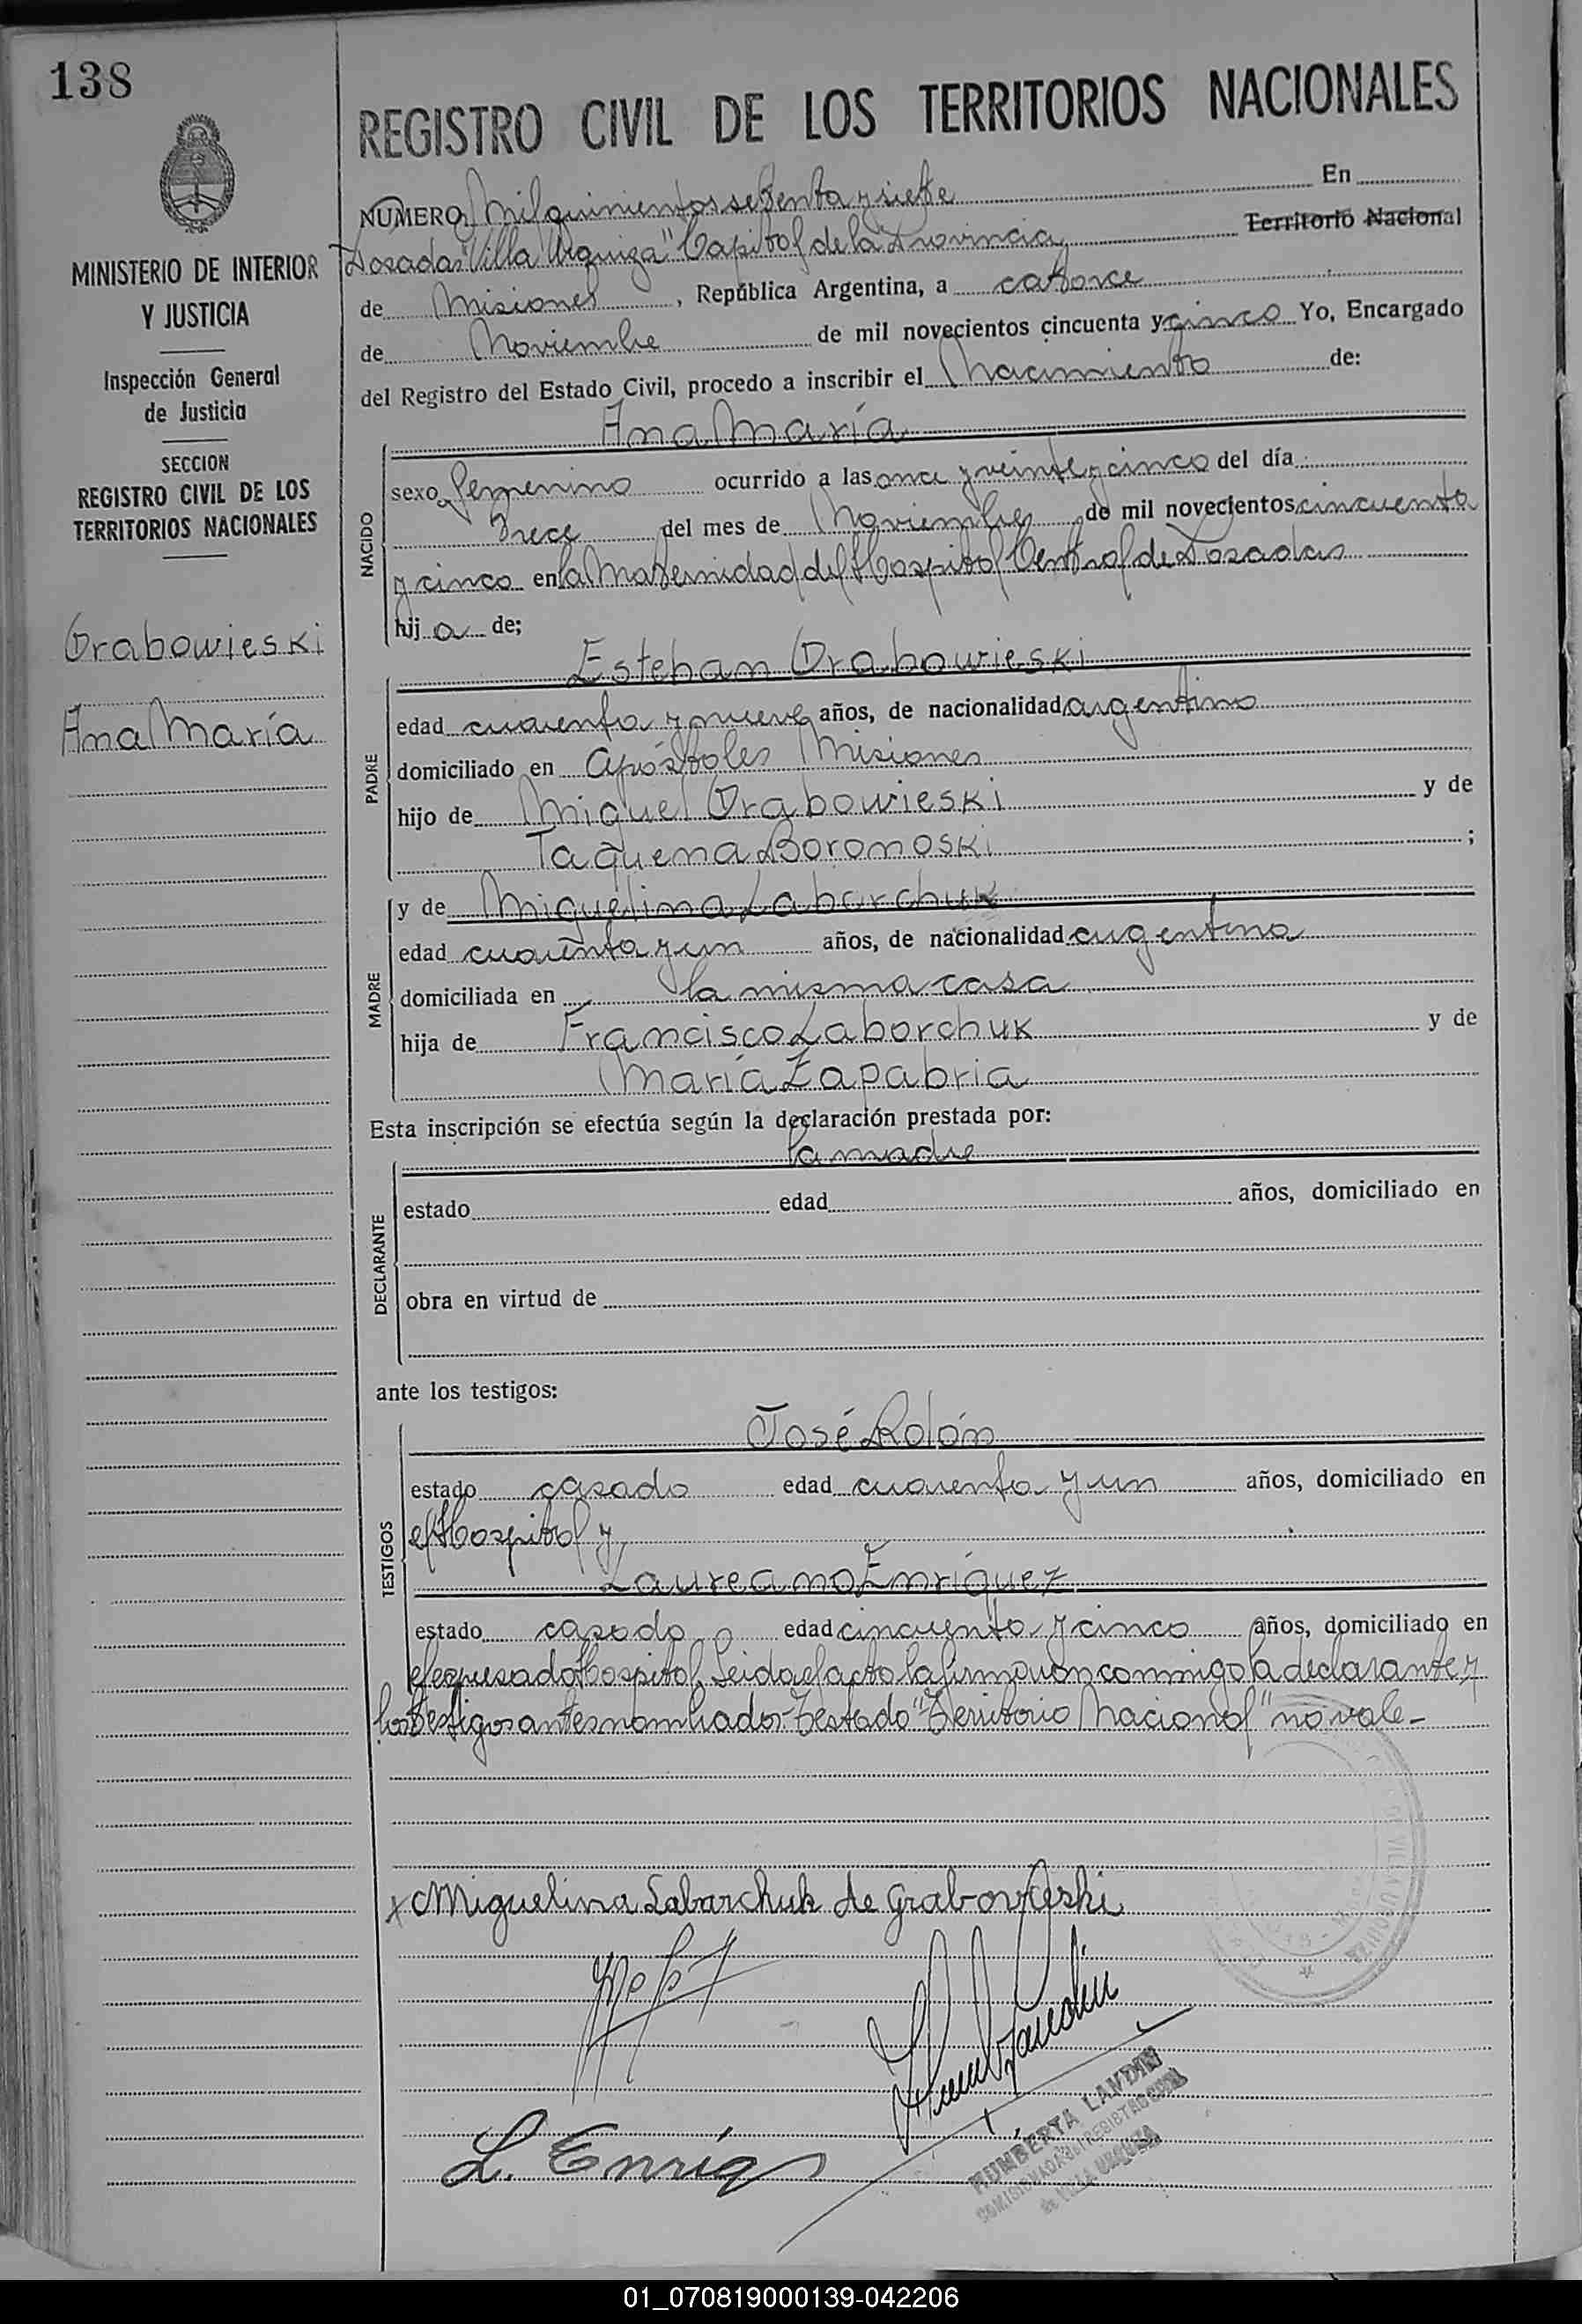 138
MINISTERIO DE INTERIOR
Y JUSTICIA
Inspección General
de Justicia
SECCION
REGISTRO CIVIL DE LOS
TERRITORIOS NACIONALES
Grabowieski
Ana María
REGISTRO CIVIL DE LOS TERRITORIOS NACIONALES
NUMERO Mil quinientos setenta y siete En
Posadas "Villa Urquiza" Capital de la Provincia Territorio Nacional
de Misiones, República Argentina, a catorce
de Noviembre de mil novecientos cincuenta y cinco Yo, Encargado
del Registro del Estado Civil, procedo a inscribir el Nacimiento de:
NACIDO
Ana María
sexo femenino ocurrido a las once y veinte y cinco del día
trece del mes de Noviembre de mil novecientos cincuenta
y cinco en la Maternidad del Hospital Central de Posadas
hija de;
PADRE
Esteban Grabowieski
edad cuarenta y nueve años, de nacionalidad argentino
domiciliado en Apóstoles Misiones
hijo de Miguel Grabowieski y de
Taquena Boronoski ;
MADRE
y de Miguelina Labarchuk
edad cuarenta y un años, de nacionalidad argentina
domiciliada en la misma casa
hija de Francisco Laborchuk y de
María Zapabria
Esta inscripción se efectúa según la declaración prestada por:
DECLARANTE
la madre
estado edad años, domiciliado en
obra en virtud de
ante los testigos:
TESTIGOS
José Rolón
estado casado edad cuarenta y un años, domiciliado en
el Hospital y
Laureano Enríquez
estado casado edad cincuenta y cinco años, domiciliado en
el expresado Hospital. Leida el acta la firmaron conmigo la declarante y
los testigos antes nombrados-Testado "Territorio Nacional" no vale-
x Miguelina Labarchuk de Graboveski
L. Enriq
HUMBERTA LANDIN
COMISIONADA del REGISTRO CIVIL
de VILLA URQUIZA
01_070819000139-042206